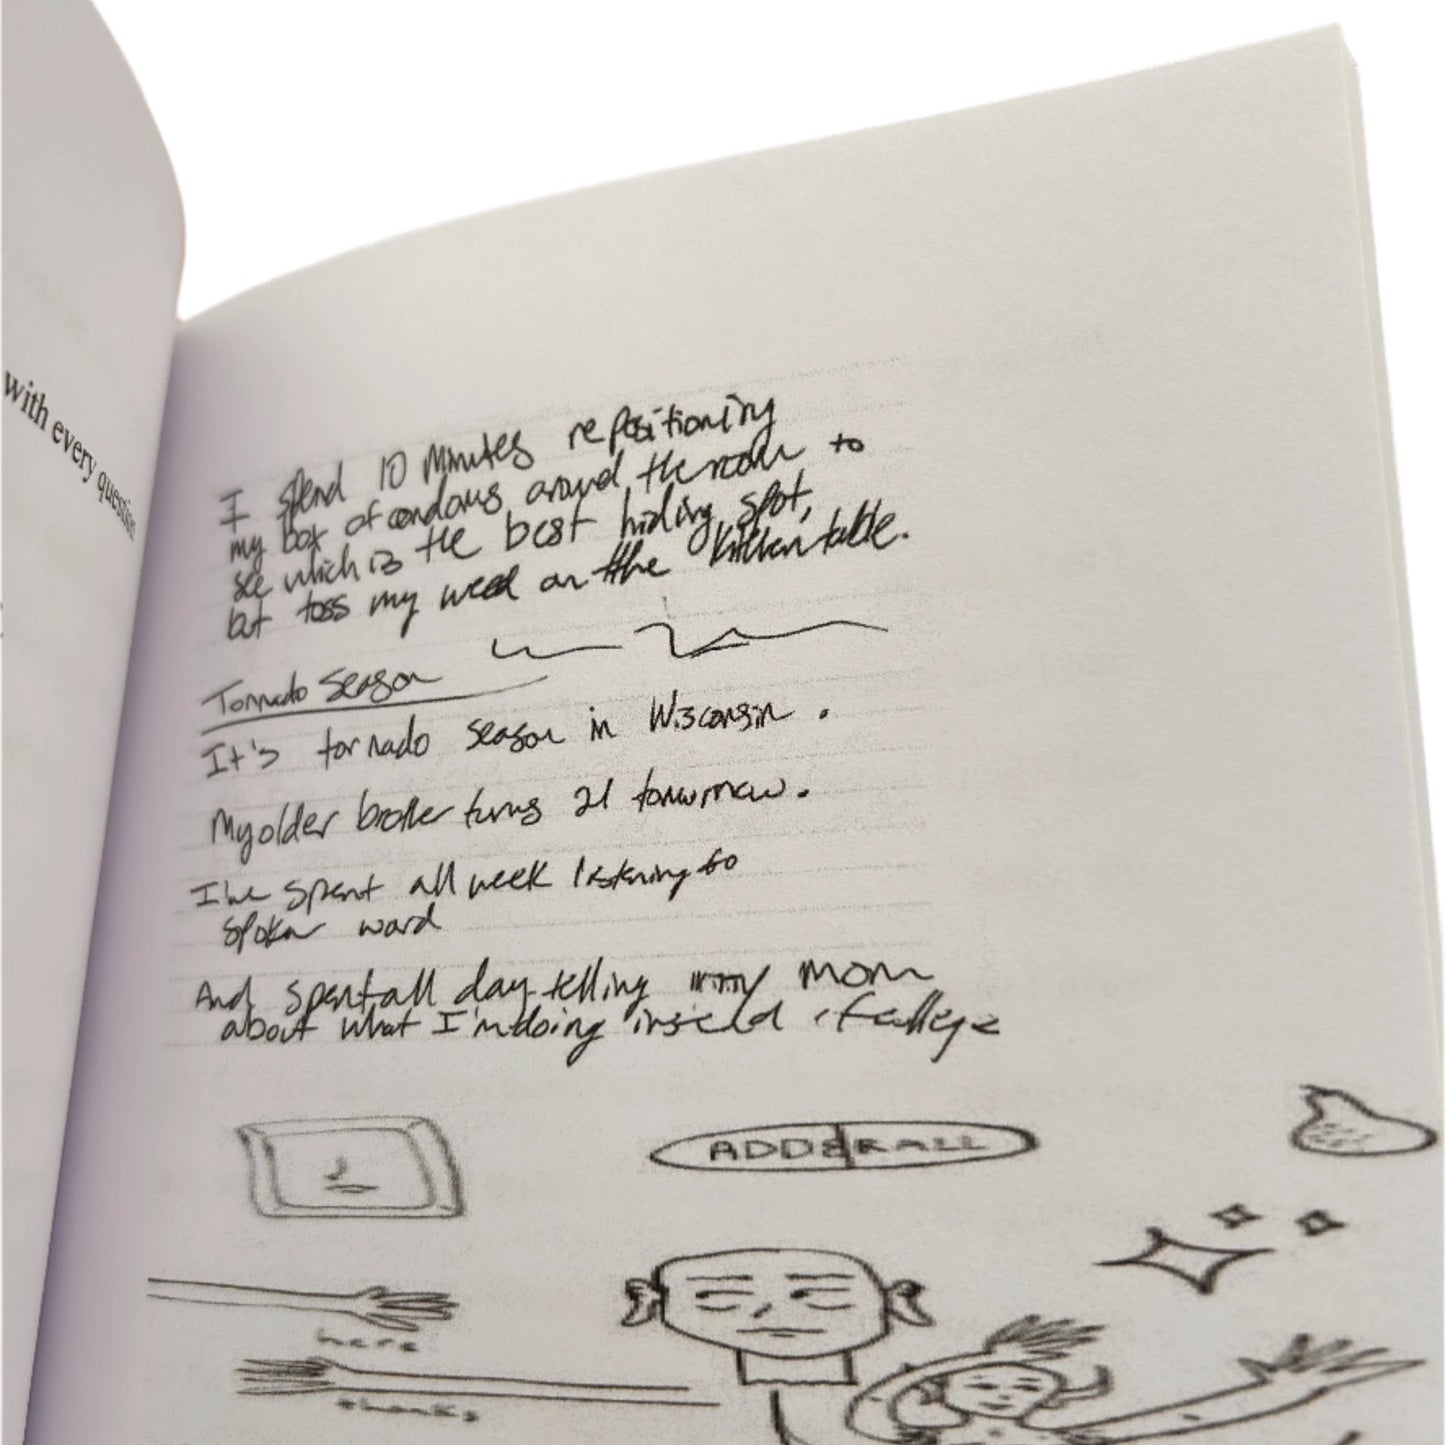 with every question
I spend 10 minutes repositioning
my box of condoms around the room to
see which is the best hiding spot,
but toss my weed on the kitchen table.
Tornado Season
It's tornado season in Wisconsin.
My older brother turns 21 tomorrow.
I've spent all week listening to
spoken word
And spent all day telling my mom
about what I'm doing instead of college
ADDERALL
here
thanks